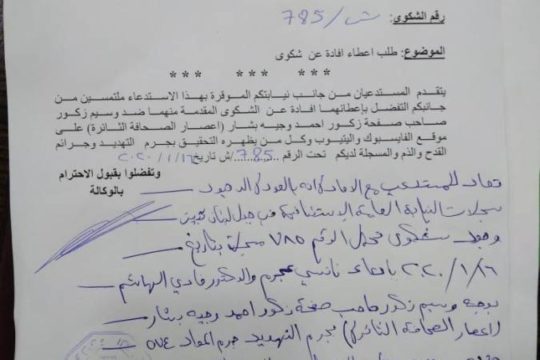 رقم الشكوى: 785/ش
الموضوع: طلب اعطاء افادة عن شكوى
*** *** ***
يتقدم المستدعيان من جانب نيابتكم الموقرة بهذا الاستدعاء ملتمسين من
جانبكم التفضل بإعطائهما افادة عن الشكوى المقدمة منهما ضد وسيم زكور
صاحب صفحة زكور احمد وجيه بشار (اعصار الصحافة الثائرة) على
موقع الفايسبوك واليتيوب وكل من يظهره التحقيق بجرم التهديد وجرائم
القدح والذم والمسجلة لديكم تحت الرقم 785/ش تاريخ ٢٠٢٠/١/١٦
وتفضلوا بقبول الاحترام
بالوكالة
تعاد للمستدعي مع الافادة انه بالعودة الى
سجلات النيابة العامة الاستئنافية في جبل لبنان تبين
وجود شكوى تحمل الرقم ٧٨٥ مسجلة بتاريخ
٢٠٢٠/١/١٦ بادعاء نانسي عجرم والدكتور فادي الهاشم
بوجه وسيم زكور صاحب صفحة زكور احمد وجيه بشار
(اعصار الصحافة الثائرة) بجرم التهديد جرم المواد ٥٧٤